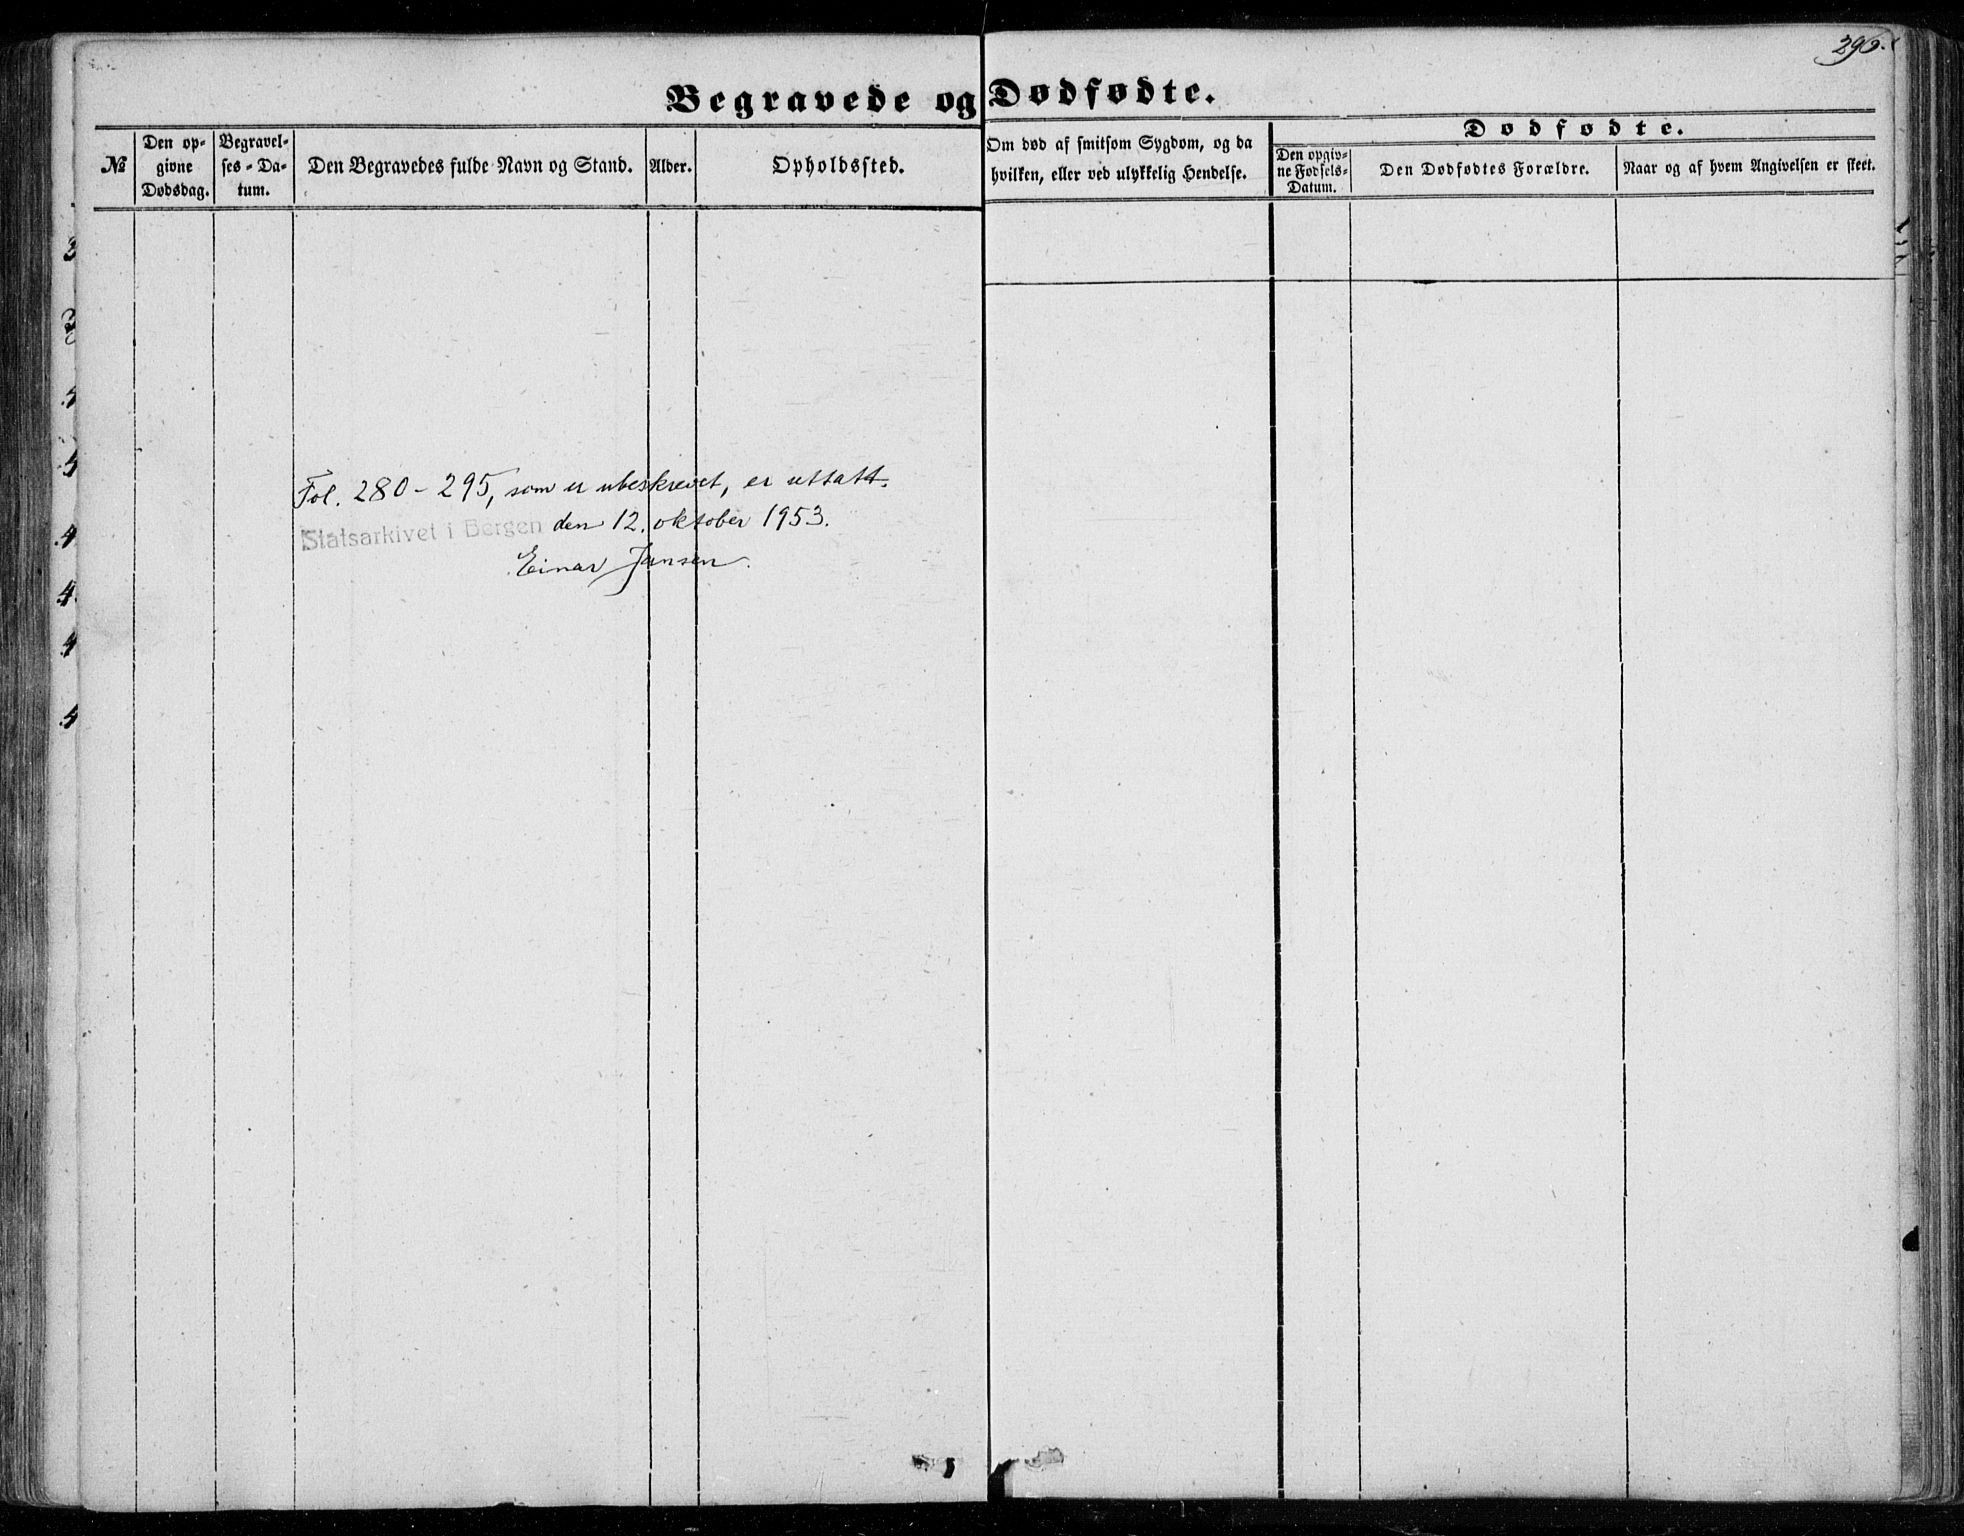 296.
Begravede og Dødfødte.
№
Den op-
givne
Dødsdag.
Begravel-
ses-Da-
tum.
Den Begravedes fulde Navn og Stand.
Alder.
Opholdssted.
Om død af smitsom Sygdom, og da
hvilken, eller ved ulykkelig Hendelse.
Dødfødte.
Den opgiv-
ne Fødsels-
Datum.
Den Dødfødtes Forældre.
Naar og af hvem Angivelsen er skeet.
Fol. 280-295, som er ubeskrevet, er uttatt.
Statsarkivet i Bergen den 12. oktober 1953.
Einar Jansen.